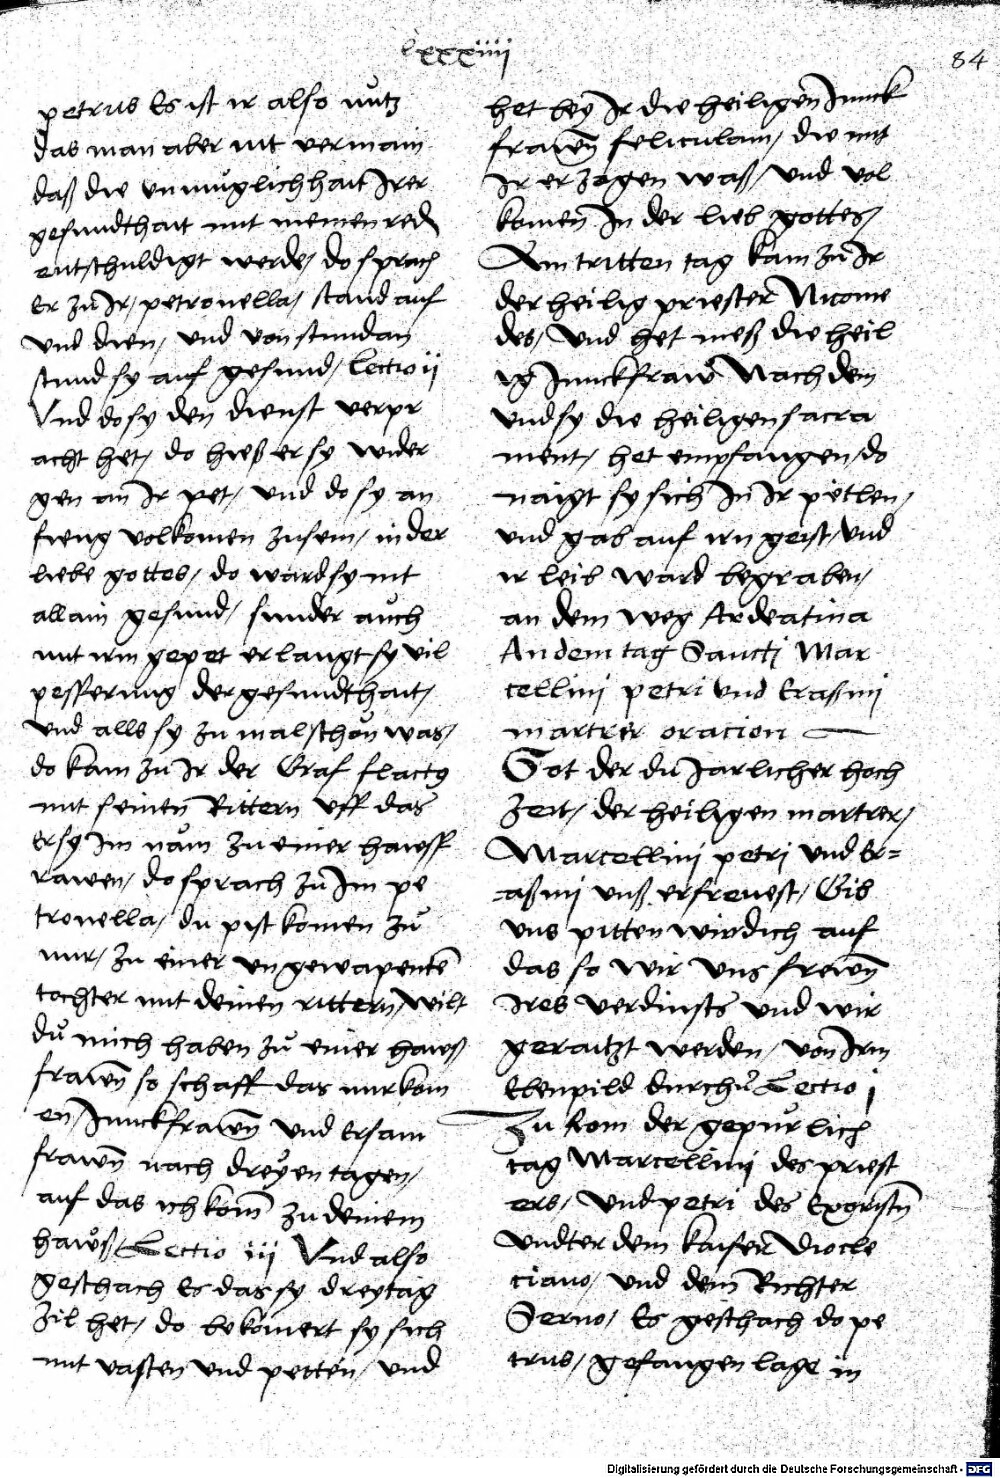 lxxxiiii
84
petrus Es ist ir also nutz
das man aber nit vermain
daß die unmuglichhait Irer
gesundthait mit meinen red
entschuldigt werde, do sprach
Er zu Ir, petronella, stand auf
und dien, und von stundan
stund sy auf gesund, Lectio ij
Und do sy den dienst verpr
acht het, do hieß er sy wider
gen an Ir pet, und do sy an
fieng volkomen zu sein, in der
liebe gottes, do ward sy nit
allain gesund, sunder auch
mit irm gepet erlangt sy vil
pesserung der gesundthait,
und alls sy zu mal schon was,
do kam zu Ir der Graf flaccus
mit seinen Rittern uff das
er sy Im näm zu einer hawsf
rawen, do sprach zu Im pe
tronella, du pist komen zu
mir, zu einer ungewapente
tochter mit deinen rittern, wilt
du mich haben zu einer hawß
frawen so schaff das mir kom
en, Junckfrawen und Ersam
frawen nach dreyen tagen,
auf das ich kom zu deinem
hawß, Lectio iij Und also
geschach Es das sy dreytag
zil het, do bekomert sy sich
mit vasten und petten, und
het bey Ir die heiligen Junck
frawen feliculam, die mit
Ir erzogen waß, und vol
komen In der lieb gottes,
Am tritten tag kam zu Ir
der heilig priester Nicome
des, Und het meß die heil
ig Junckfraw Nach dem
und sy die heiligen sacra
ment, het empfangen, do
naigt sy sich In Ir petlen,
und gab auf irn geist, und
ir leib ward begraben,
an dem weg Ardeatina
An dem tag Sancti Mar
cellini petri und Erasmi
martrer oracion
Got der du Jarlicher hoch
zeit, der heiligen martrer,
Marcellini petri und Er=
=aßmi unß erfrewest, Gib
uns pitten wir dich auf
das so wir uns frewen
Ires verdinsts und wir
geraitzt werden, von Irm
Ebenpild durch Lectio j
Zu kom der gepurlich
tag Marcellini des priest
ers, Und petri des Exoristn
undter dem kaiser Diocle
ciano, und dem Richter
Sereno, Es geschach do pe
trus, gefangen lage in
Digitalisierung gefördert durch die Deutsche Forschungsgemeinschaft - DFG